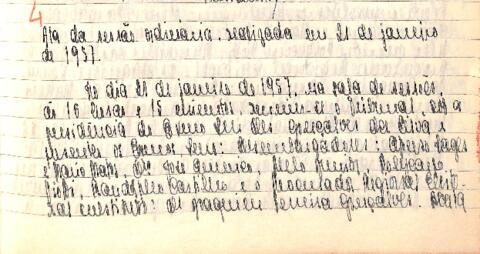 4
Ata da sessão ordinária, realizada em 21 de janeiro
de 1957.
No dia 21 de janeiro de 1957, na sala de sessões,
às 16 horas e 15 minutos, reuniu-se o Tribunal, sob a
presidência do Exmo Snr Des Gonçalves da Silva e
presentes os Exmos Snrs: Desembargadores:
e Mario Matos, Drs José Americo, Mello Junior,
Pinto, e o Procurador Regional Eleito-
ral substituto: dr Joaquim Ferreira Gonçalves.